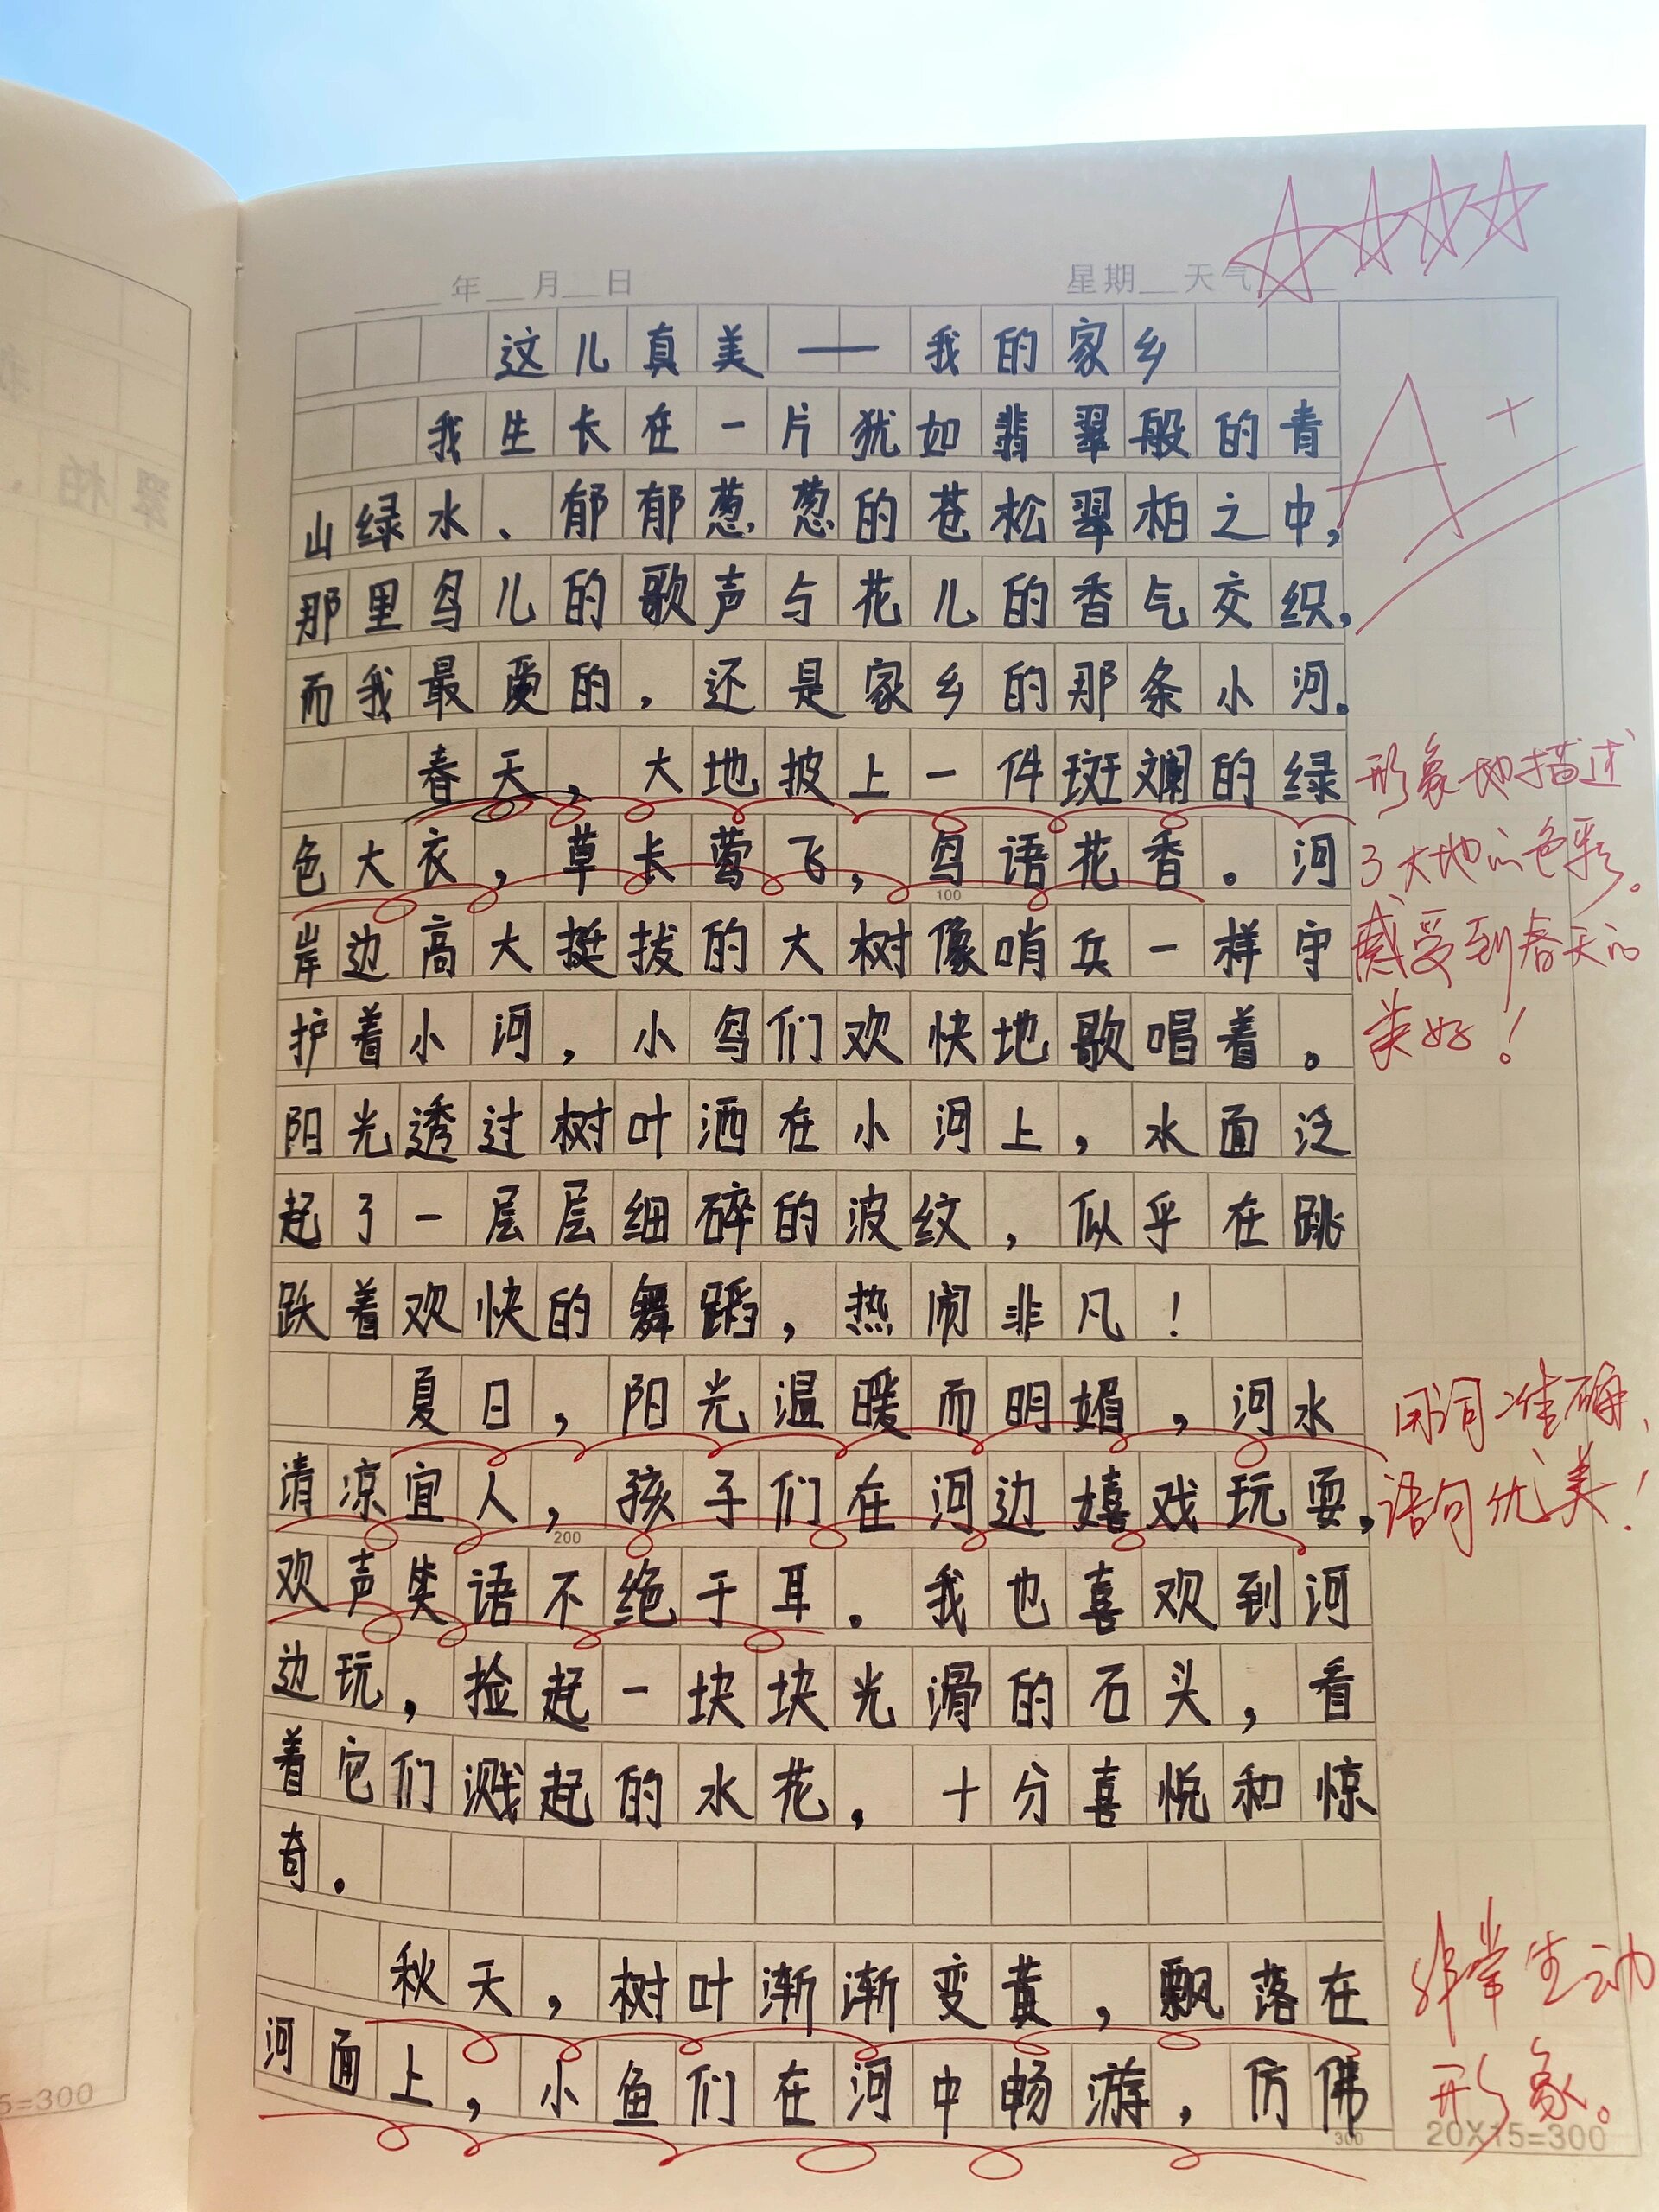 年 月 日 星期 天气
这儿真美——我的家乡
我生长在一片犹如翡翠般的青
山绿水、郁郁葱葱的苍松翠柏之中,
那里鸟儿的歌声与花儿的香气交织,
而我最爱的,还是家乡的那条小河。
春天,大地披上一件斑斓的绿
色大衣,草长莺飞,鸟语花香。河
岸边高大挺拔的大树像哨兵一样守
护着小河,小鸟们欢快地歌唱着。
阳光透过树叶洒在小河上,水面泛
起了一层层细碎的波纹,似乎在跳
跃着欢快的舞蹈,热闹非凡!
夏日,阳光温暖而明媚,河水
清凉宜人,孩子们在河边嬉戏玩耍,
欢声笑语不绝于耳。我也喜欢到河
边玩,捡起一块块光滑的石头,看
着它们溅起的水花,十分喜悦和惊
奇。
秋天,树叶渐渐变黄,飘落在
河面上,小鱼们在河中畅游,仿佛
100
200
300
20X15=300
A+
形象地描述
了大地的色彩。
感受到春天的
美好!
用词准确、
语句优美!
非常生动
形象。
翠柏、
5=300